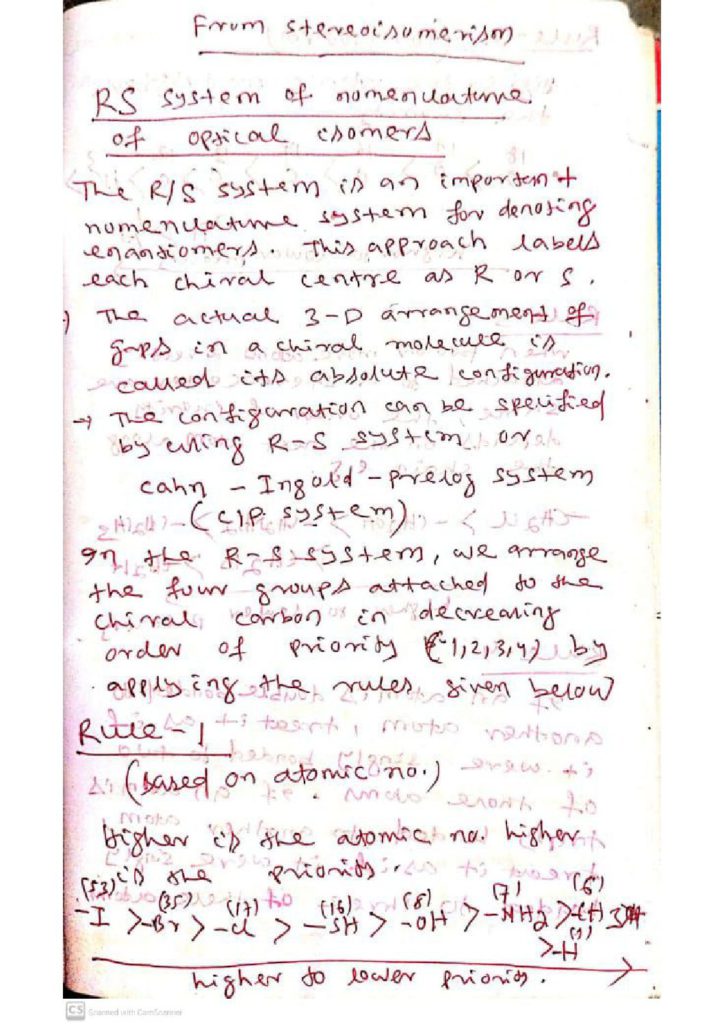 From stereoisomerism
RS system of nomenclature
of optical isomers
The R/S system is an important
nomenclature system for denoting
enantiomers. This approach labels
each chiral centre as R or S.
The actual 3-D arrangement of
grps in a chiral molecule is
called its absolute configuration.
→ The configuration can be specified
by using R-S system or
cahn - Ingold - prelog system
(CIP system).
In the R-S system, we arrange
the four groups attached to the
chiral carbon in decreasing
order of priority (1,2,3,4) by
applying the rules given below
Rule-1
(based on atomic no.)
Higher is the atomic no. higher
is the priority.
(53) (35) (17) (16) (8) (7) (6)
-I >-Br >-Cl >-SH >-OH >-NH2 >-CH3
(1)
>-H
higher to lower priority.
CS Scanned with CamScanner